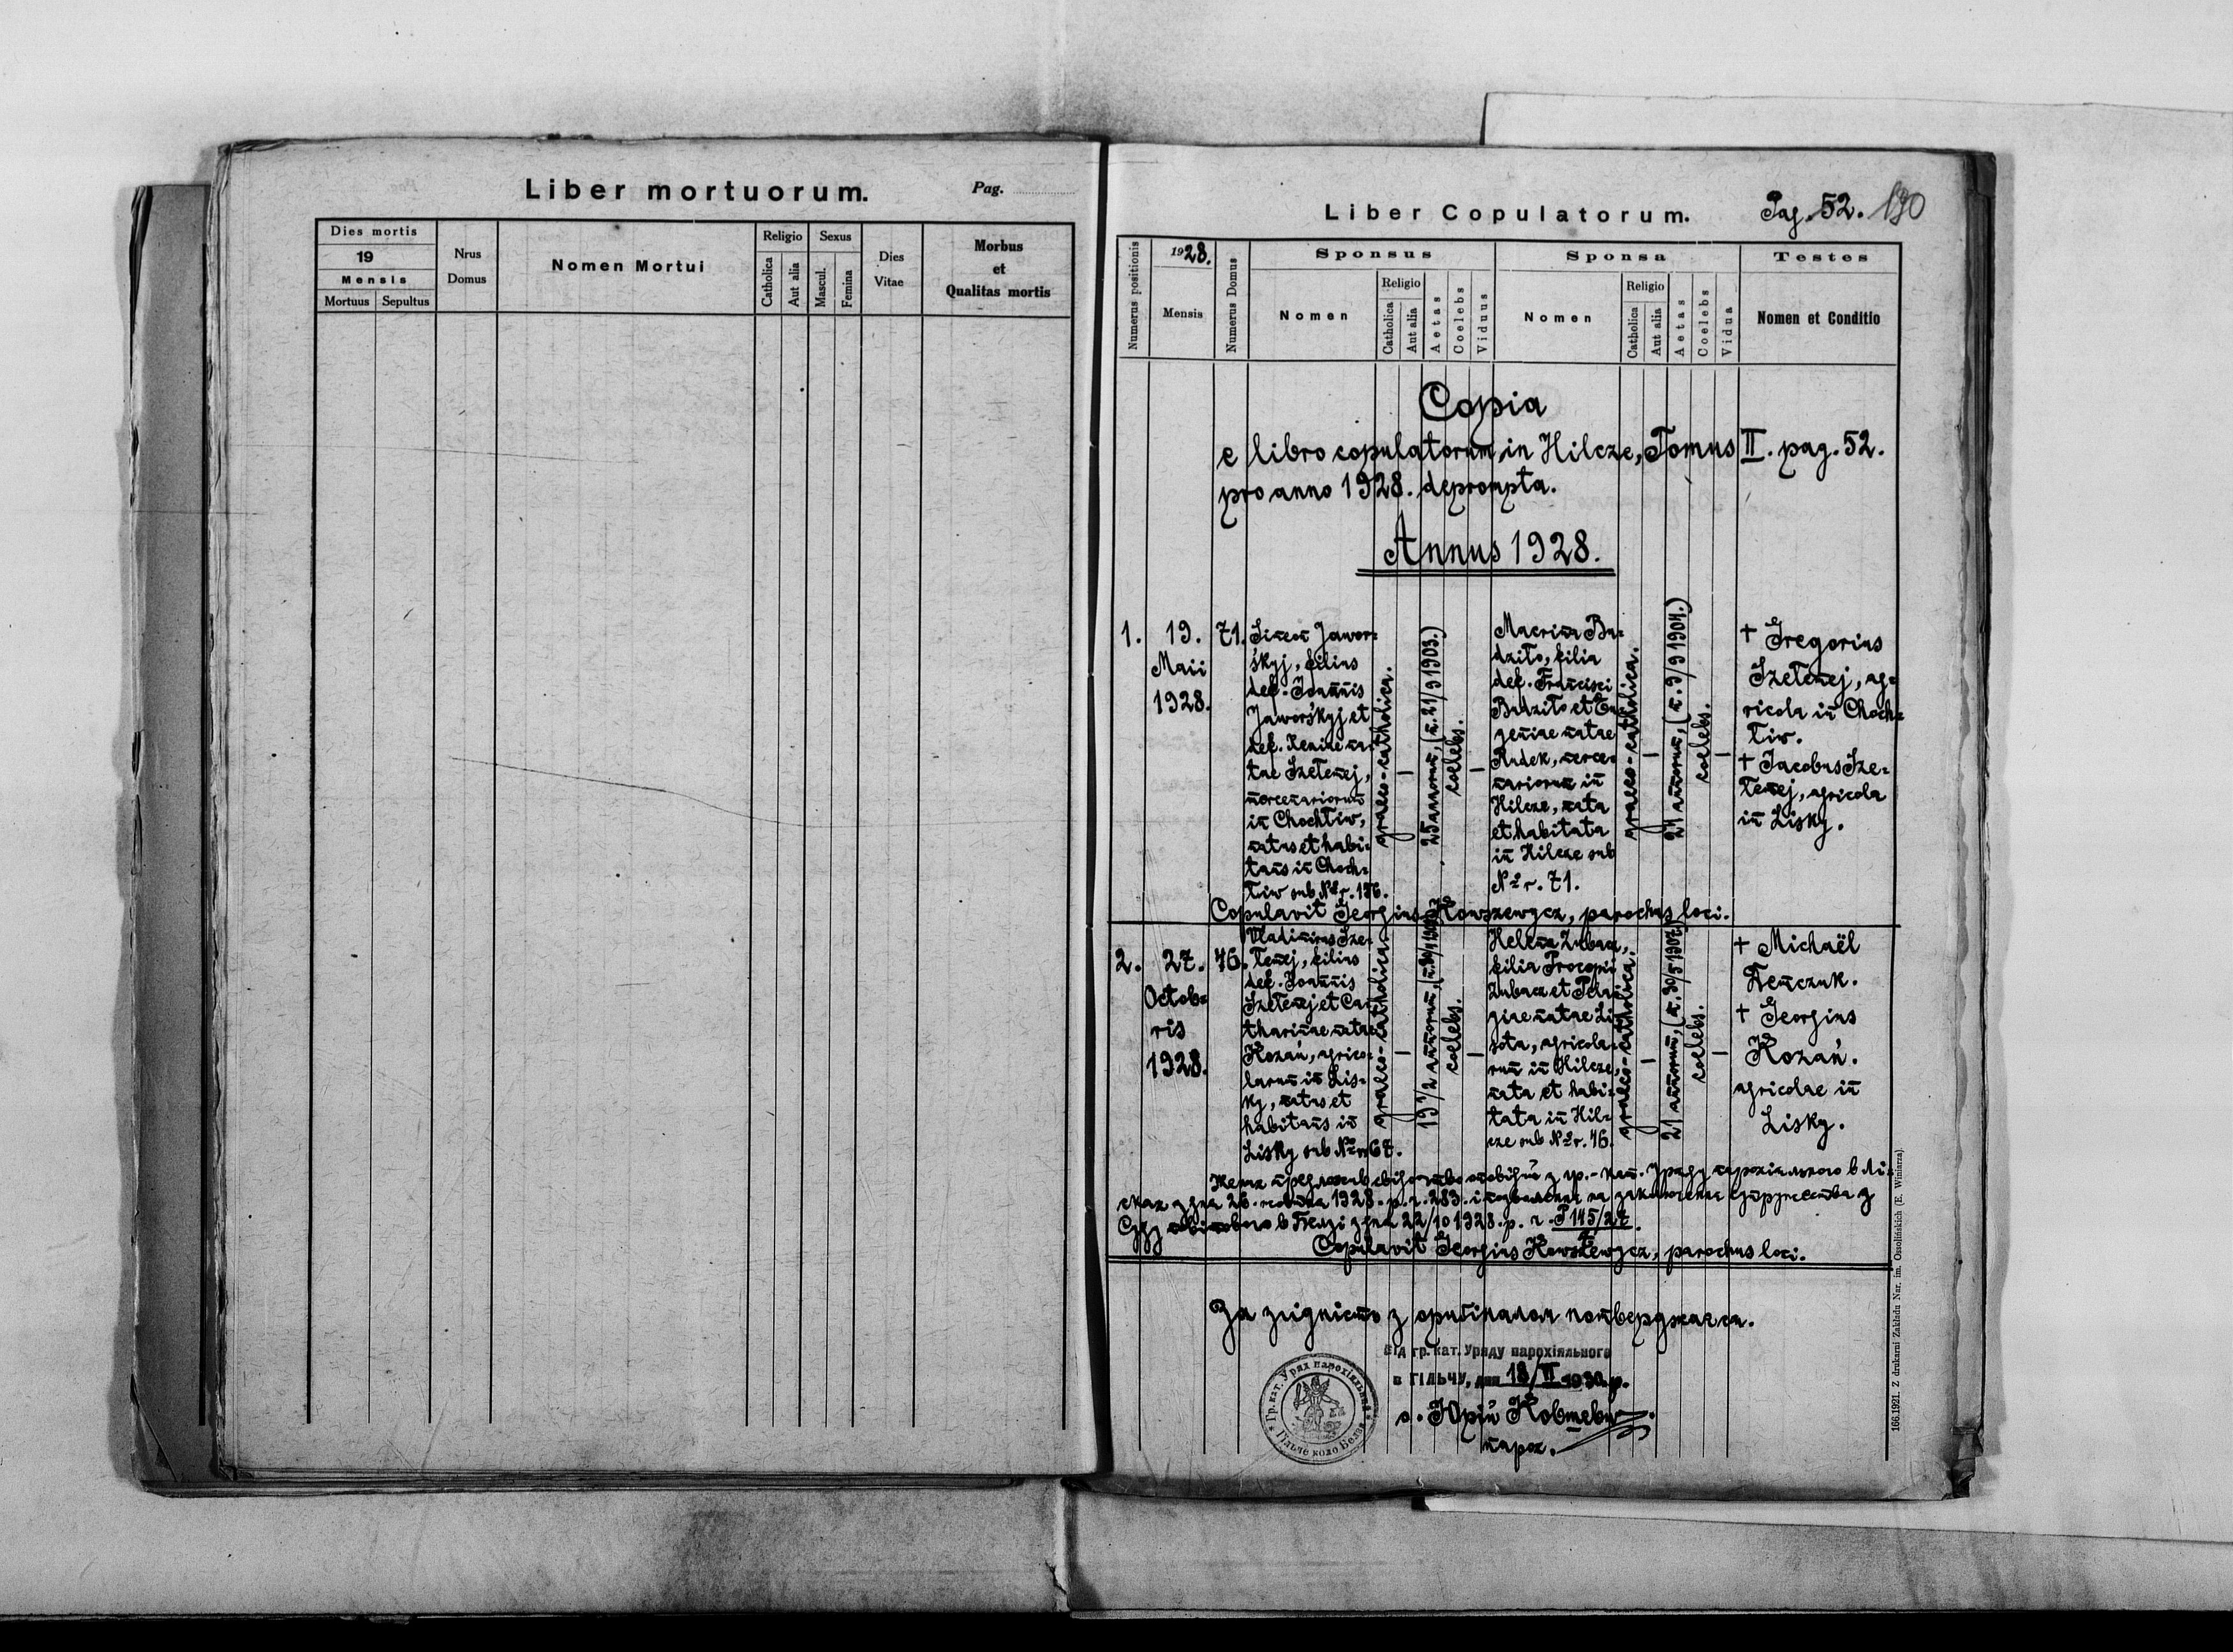 Liber mortuorum.
Pag.
Dies mortis
19
Mensis
Mortuus
Sepultus
Nrus
Domus
Nomen Mortui
Religio
Catholica
Aut alia
Sexus
Mascul.
Femina
Dies
Vitae
Morbus
et
Qualitas mortis
Liber Copulatorum.
Pag. 52.
190
Numerus positionis
1928.
Mensis
Numerus Domus
Sponsus
Nomen
Religio
Catholica
Aut alia
Aetas
Coelebs
Viduus
Sponsa
Nomen
Religio
Catholica
Aut alia
Aetas
Coelebs
Vidua
Testes
Nomen et Conditio
Copia
e libro copulatorum in Hilcze, Tomus II. pag. 52.
pro anno 1928. deprompta.
Annus 1928.
1.
19.
Maii
1928.
71.
Simeon Jawor=
śkyj, filius
def. Joannis
Jaworśkyj et
def. Xeniae na=
tae Szetenej,
mercenariorum
in Chochtiw,
natus et habi=
tans in Choch=
tiw sub №r. 176.
graeco-catholica.
—
25 annorum, (n. 21/9 1903.)
coelebs.
—
Macrina Bu=
dzito, filia
def. Francisci
Budzito et Eu=
geniae natae
Rudek, merce=
nariorum in
Hilcze, nata
et habitata
in Hilcze sub
№r. 71.
graeco-catholica.
—
24 annorum, (n. 9/9 1904.)
coelebs.
—
+ Gregorius
Szetenej, ag=
ricola in Choch=
tiw.
+ Jacobus Sze=
tenej, agricola
in Lisky.
Copulavit Georgius Kowszewycz, parochus loci.
2.
27.
Octob=
ris
1928.
46.
Vladimirus Sze=
tenej, filius
def. Joannis
Szetenej et Ca=
tharinae natae
Kozań, agrico=
larum in Lis=
ky, natus et
habitans in
Lisky sub №r. 67.
graeco-catholica.
—
19 1/2 annorum,
coelebs.
—
Helena Zubacz,
filia Procopii
Zubacz et Pela=
giae natae Li=
sota, agricola=
rum in Hilcze,
nata et habi=
tata in Hil=
cze sub №r. 46.
graeco-catholica.
—
21 annorum, (n. 30/5 1907.)
coelebs.
—
+ Michaël
Demczuk.
+ Georgius
Kozań.
agricolae in
Lisky.
Жених предложив свідоцтво оповідий з гр.-кат. Уряду парохіяльного в Лі=
сках з дня 26. жовтня 1928. р. ч. 283. і позволення на заключення супружества з
Суду повітового в Белзі з дня 22/10 1928. р. ч. P 145/27
4
Copulavit Georgius Kowszewycz, parochus loci.
За згідність з оригіналом потверджаєся.
Від гр. кат. Уряду парохіяльного
в ГІЛЬЧУ, дня 18/II 1930 р.
о. Юрій Ковшевич.
парох.
Гр. кат. Уряд парохіяльний
Гільче коло Белза
166.1921. Z drukarni Zakładu Nar. im. Ossolińskich (E. Winiarza).